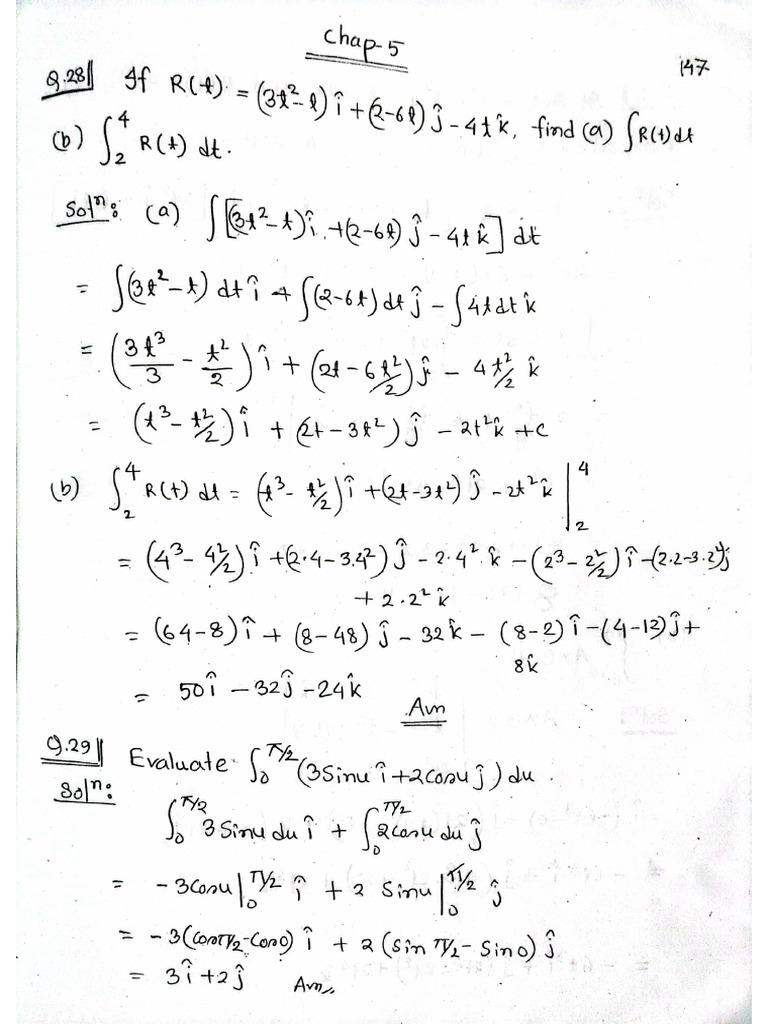 Chap-5
147
Q.28 If R(t) = (3t²-t) î + (2-6t) ĵ - 4t k̂, find (a) ∫R(t)dt
(b) ∫₂⁴ R(t) dt.
Solⁿ: (a) ∫[(3t²-t)î + (2-6t) ĵ - 4t k̂] dt
= ∫(3t²-t) dt î + ∫(2-6t) dt ĵ - ∫4t dt k̂
= (3t³/3 - t²/2) î + (2t - 6t²/2) ĵ - 4t²/2 k̂
= (t³ - t²/2) î + (2t - 3t²) ĵ - 2t² k̂ + c
(b) ∫₂⁴ R(t) dt = (t³ - t²/2) î + (2t - 3t²) ĵ - 2t² k̂ |₂⁴
= (4³ - 4²/2) î + (2·4 - 3·4²) ĵ - 2·4² k̂ - (2³ - 2²/2) î - (2·2 - 3·2²) ĵ
+ 2·2² k̂
= (64-8) î + (8-48) ĵ - 32 k̂ - (8-2) î - (4-12) ĵ +
8k̂
= 50 î - 32 ĵ - 24 k̂
Ans
Q.29 Evaluate ∫₀^π/2 (3 Sinu î + 2 cosu ĵ) du.
Solⁿ:
∫₀^π/2 3 Sinu du î + ∫₀^π/2 2 cosu du ĵ
= -3 cosu |₀^π/2 î + 2 Sinu |₀^π/2 ĵ
= -3 (cos π/2 - cos 0) î + 2 (sin π/2 - sin 0) ĵ
= 3 î + 2 ĵ Ans